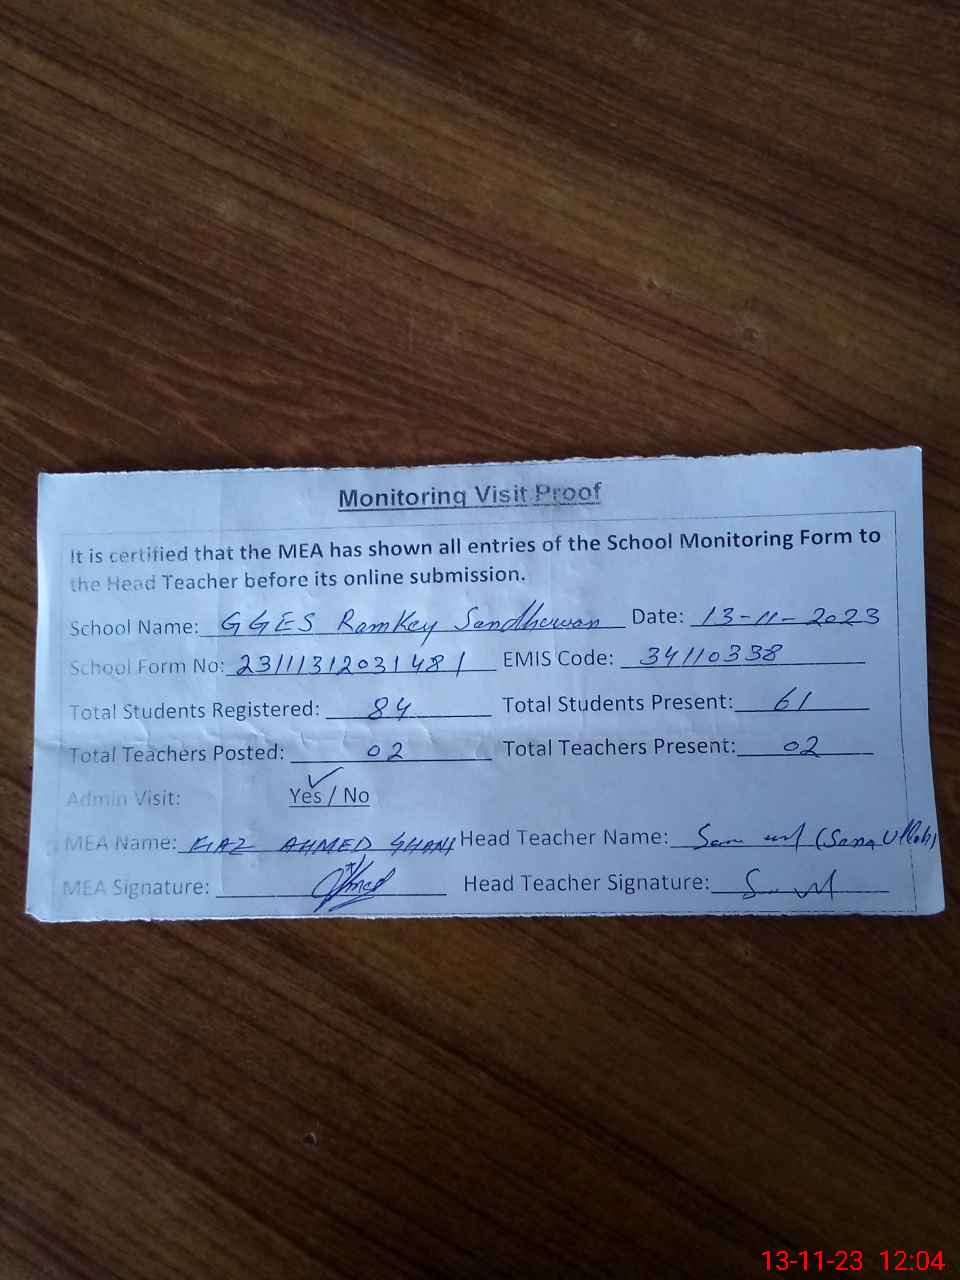 Monitoring Visit Proof
It is certified that the MEA has shown all entries of the School Monitoring Form to
the Head Teacher before its online submission.
School Name: GGES Ramkey Sandhewan Date: 13-11-2023
School Form No: 23111312031481 EMIS Code: 34110338
Total Students Registered: 84 Total Students Present: 61
Total Teachers Posted: 02 Total Teachers Present: 02
Admin Visit: Yes / No
MEA Name: AHMED GHANI Head Teacher Name: (Sana Ullah)
MEA Signature: Head Teacher Signature:
13-11-23 12:04